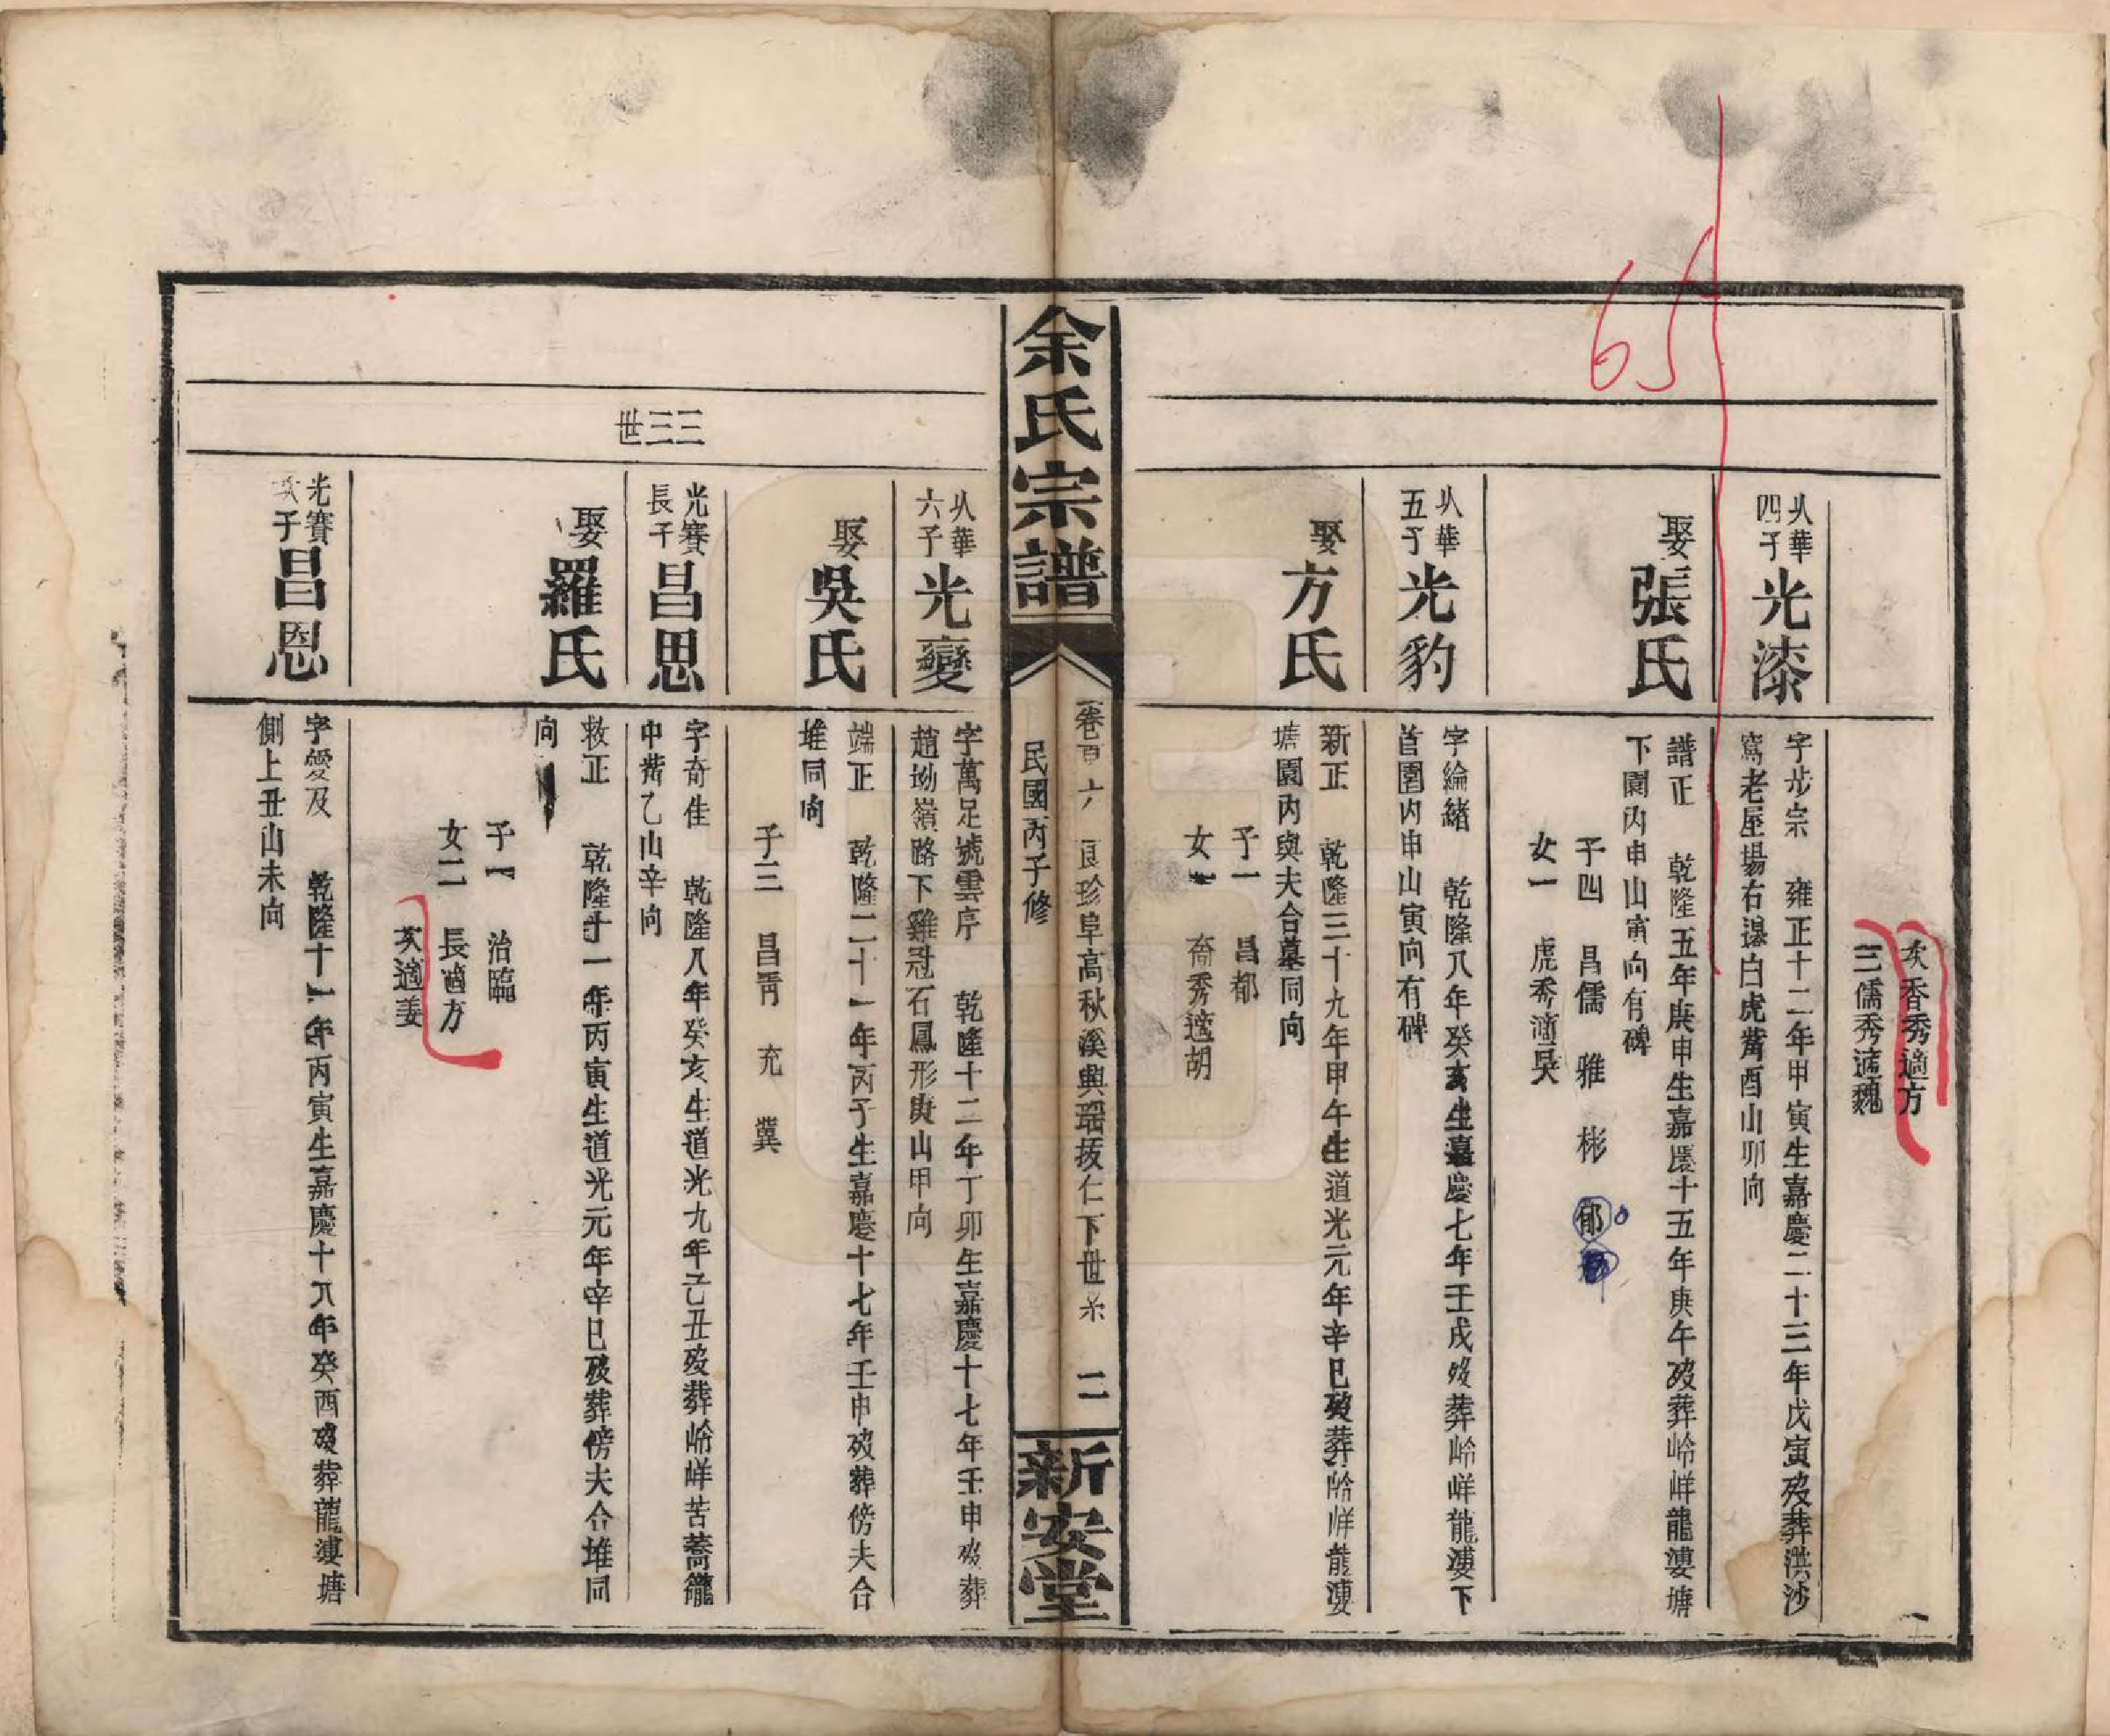 65
次香秀適方
三儒秀適魏
从華
四子
光漆
字步宗 雍正十二年甲寅生嘉慶二十三年戊寅歿葬洪沙
窩老屋場右瀑白虎嘴酉山卯向
娶張氏
譜正 乾隆五年庚申生嘉慶十五年庚午歿葬岭峄龍漊塘
下園内申山寅向有碑
子四 昌儒 雅 彬 郁
女一 虎秀適吳
从華
五子
光豹
字綸緒 乾隆八年癸亥生嘉慶七年壬戌歿葬岭峄龍漊下
首園内申山寅向有碑
娶方氏
新正 乾隆三十九年甲午生道光元年辛巳歿葬岭峄龍漊
塘園内與夫合墓同向
子一 昌都
女一 奇秀適胡
余氏宗譜
卷百六 良珍阜高秋溪與瑶拔仁下世系 二
民國丙子修
新安堂
从華
六子
光變
字萬足號雲序 乾隆十二年丁卯生嘉慶十七年壬申歿葬
趙坳嶺路下雞冠石鳳形庚山甲向
娶吳氏
端正 乾隆二十一年丙子生嘉慶十七年壬申歿葬傍夫合
堆同向
子三 昌靑 充 冀
三三世
光賽
長子
昌思
字奇佳 乾隆八年癸亥生道光九年己丑歿葬岭峄苦蕎籠
中嘴乙山辛向
娶羅氏
救正 乾隆十一年丙寅生道光元年辛巳歿葬傍夫合堆同
向
子一 治臨
女二 長適方
次適姜
光賽
次子
昌恩
字愛及 乾隆十一年丙寅生嘉慶十八年癸酉歿葬龍漊塘
側上丑山未向